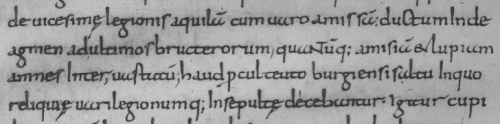 deuicesimę legionis aquilā cum uaro amissā; ductum inde
agmen adultimos bructerorum, quantūq; amisiā & lupiam
amnes inter, uastatū; haud pcul teuto burgiensi saltu Inquo
reliquię uari legionumq; Insepultę dicebantur. Igitur cupi